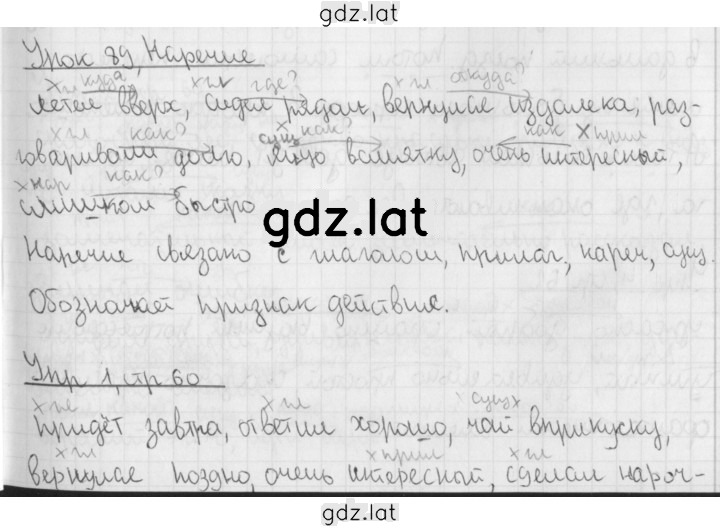 gdz.lat
Урок 89, Наречие
х гл куда? х гл где? х гл откуда?
Летел вверх, сидел рядом, вернулся издалека, раз-
х гл как? сущ х как? как х прил
говаривали долго, яйцо всмятку, очень интересный,
х нар как?
слишком быстро
gdz.lat
Наречие связано с глаголом, прилаг, нареч, сущ.
Обозначает признак действие.
Упр 1, стр 60
х гл х гл сущ х
Придёт завтра, ответил хорошо, чай вприкуску,
х гл х прил х гл
вернулся поздно, очень интересный, сделал нароч-
gdz.lat